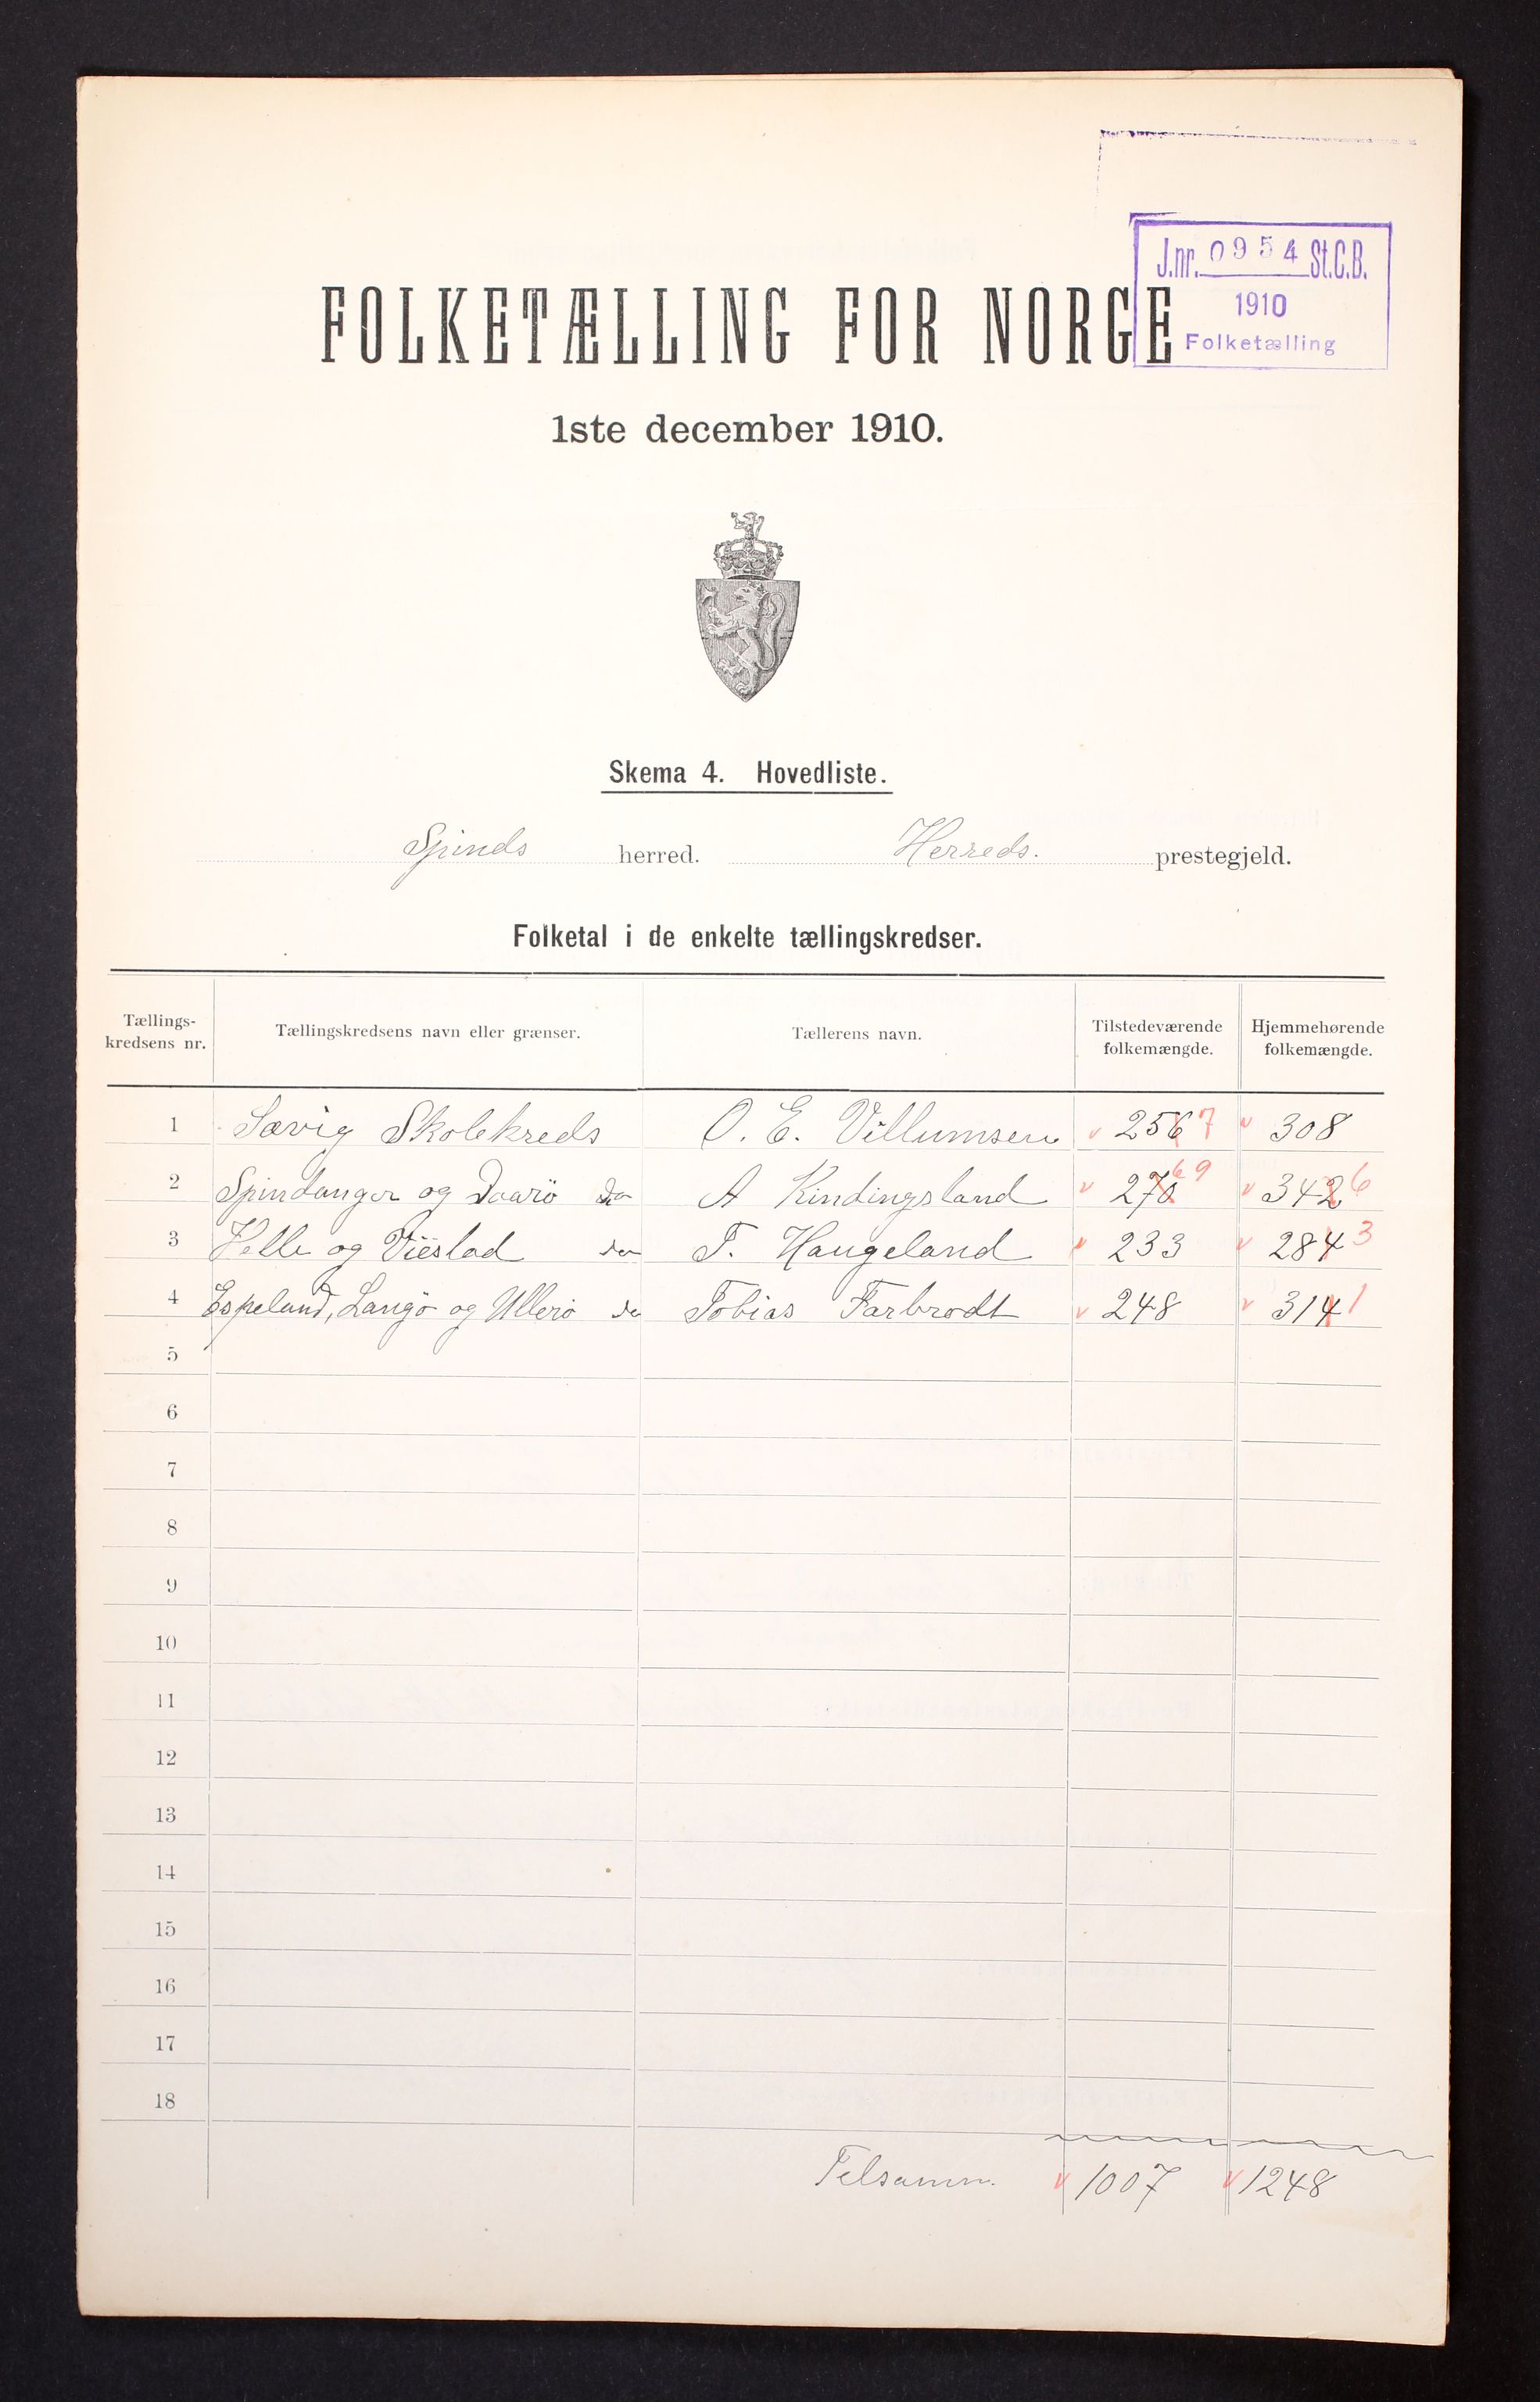 J.nr. 0954 St.C.B.
1910
Folketælling
FOLKETÆLLING FOR NORGE
1ste december 1910.
Skema 4. Hovedliste.
Spinds herred. Herreds. prestegjeld.
Folketal i de enkelte tællingskredser.
Tællings-kredsens nr. Tællingskredsens navn eller grænser. Tællerens navn. Tilstedeværende folkemængde. Hjemmehørende folkemængde.
1 Sævig Skolekreds O. E. Villumsen v 256 7 v 308
2 Spindanger og Daarö do A Kindingsland v 270 69 v 342 6
3 Helle og Viëstad do T. Haugeland v 233 v 284 3
4 Espeland, Langö og Ullerö do Tobias Farbrodt v 248 v 314 1
5
6
7
8
9
10
11
12
13
14
15
16
17
18
Tilsamm. v 1007 v 1248